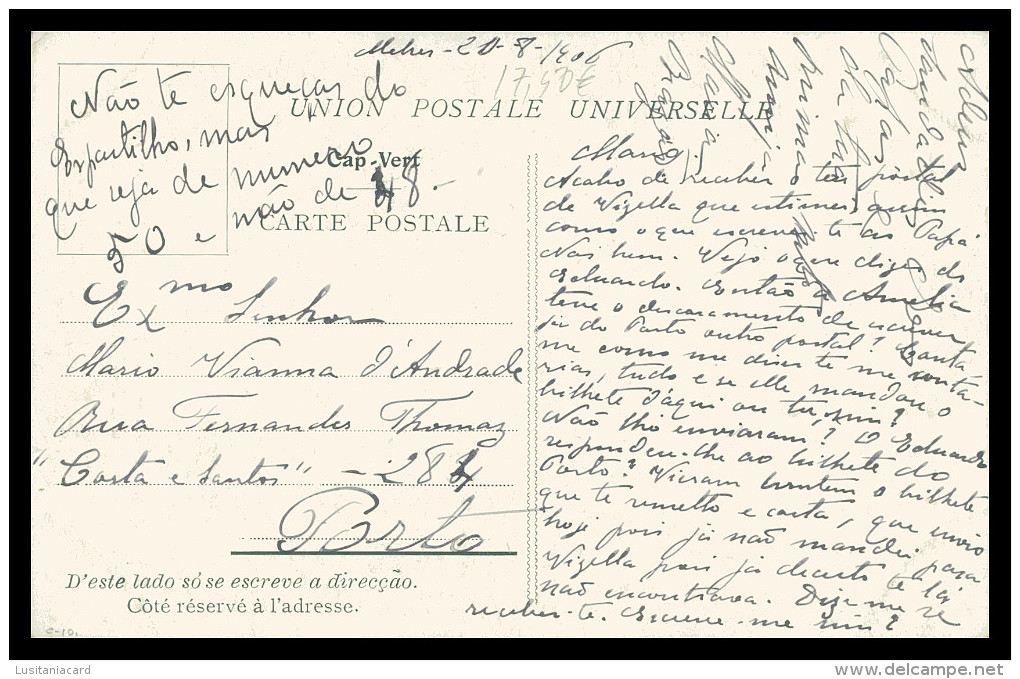 20-8-1906
Não te esqueças do
Espartilho, mas
que seja de numero
50 e não de 48.
UNION POSTALE UNIVERSELLE
Cap-Vert
CARTE POSTALE
Exmo Senhor
Mario Vianna d'Andrade
Rua Fernandes Thomaz
"Costa e Santos" - 284
Porto
D'este lado só se escreve a direcção.
Côté réservé à l'adresse.
C-10.
Mario.
Acabo de receber o teu postal
de Vizella que estimei, assim
como o que escreveste ao Papá.
Nós bem. Vejo o que dizes do
Eduardo. Então a Amelia
teve o descaramento de escrever
do Porto outro postal?
me como me disseste me
tudo e se elle mandou o
bilhete d'aqui ou
Não lh'o enviaram? O Eduardo
respondeu-lhe ao bilhete do
Porto? Vieram hontem o bilhete
que te remetto e carta, que envio
hoje pois já não mandei para
Vizella pois já decerto te lá
não encontrava. Dize-me se
receber-te. Escreve-me sim?
Adeus